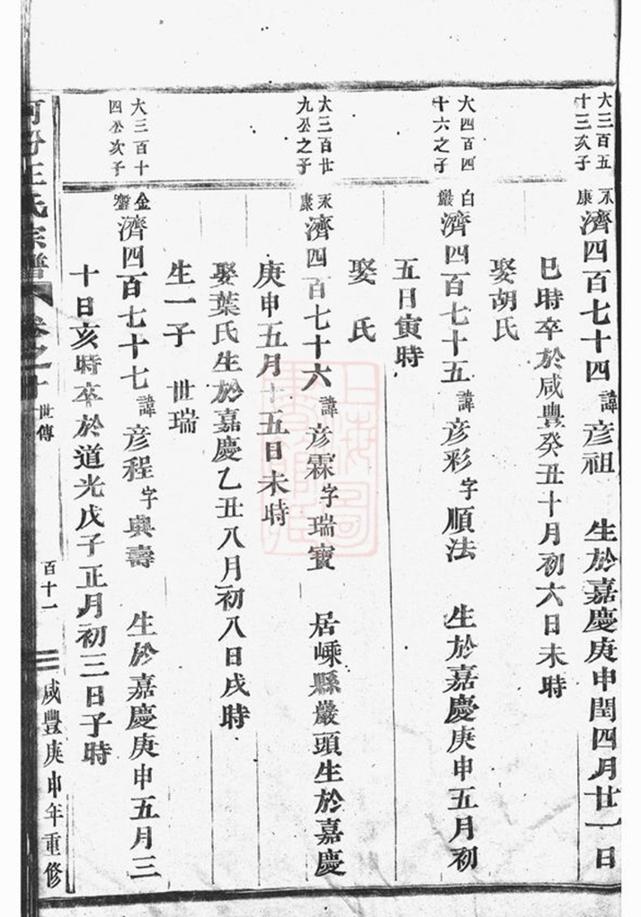 大三百五
十三次子
永康
濟四百七十四 諱彦祖 生於嘉慶庚申閏四月廿一日
巳時卒於咸豐癸丑十月初六日未時
娶胡氏
大四百四
十六之子
白巖
濟四百七十五 諱彦彩 字順法 生於嘉慶庚申五月初
五日寅時
娶 氏
大三百廿
九公之子
永康
濟四百七十六 諱彦霖 字瑞寶 居嵊縣嚴頭生於嘉慶
庚申五月十五日未時
娶葉氏生於嘉慶乙丑八月初八日戌時
生一子 世瑞
大三百十
四公次子
金
濟四百七十七 諱彦程 字興壽 生於嘉慶庚申五月三
十日亥時卒於道光戊子正月初三日子時
河汾王氏宗譜 卷之十 世傳 百十一 咸豐庚申年重修